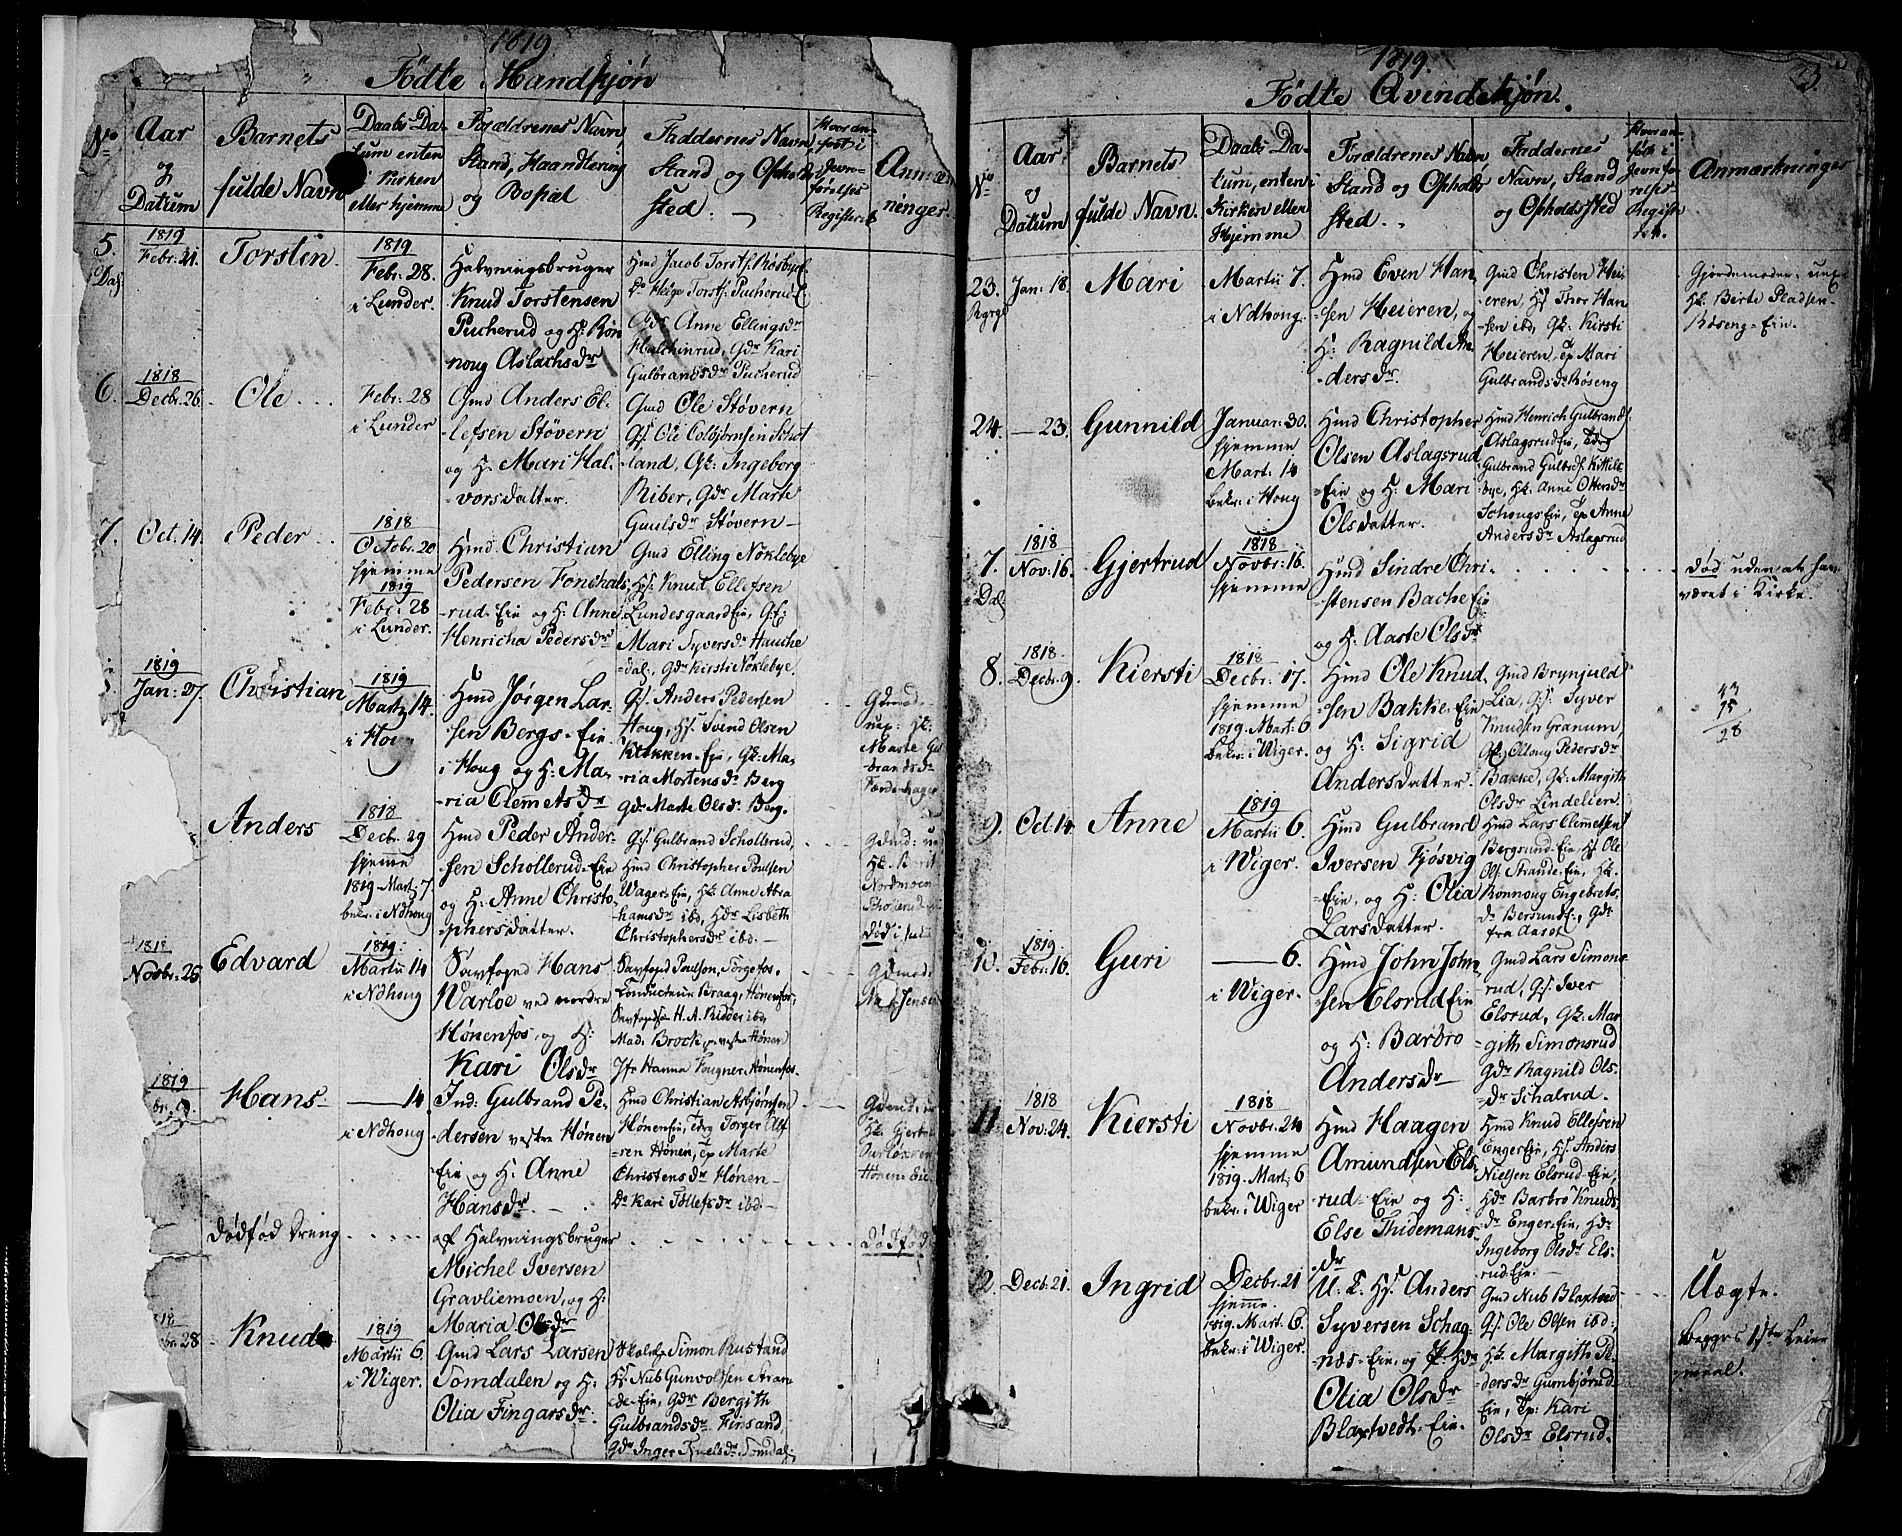 1819
Födte Mandkjön
No
Aar
og
Datum
Barnets
fulde Navn
Daabs Da-
tum enten
i Kirken
eller hjemme
Forældrenes Navn
Stand, Haandtering
og Bopæl
Faddernes Navn
Stand og Opholds
sted.
Hvor an-
fört i
Jevn-
förelses
Registeret
Anmæ
ninger
5.
Dal
1819
Febr: 21.
Torsten.
1819
Febr: 28.
i Lunder.
Halvningsbruger
Knud Torstensen
Pucherud og H: Rön
noug Aslachsdr
Hmd Jacob Torst:
Dr Helge Torst: Pucherud E
Gdr Anne Ellingsdr
Halchinrud, Gdr Kari
Gulbrandsdr Pucherud
6.
1818
Decbr. 26
Ole
Febr: 28
i Lunder
Gmd Anders El-
lefsen Stövern
og H: Mari Hal-
vorsdatter.
Gmd Ole Stövern
Gf: Ole Colbjörnsen Schot
land, Gk: Ingeborg
Riber, Gdr Marte
Guulsdr Stövern
7.
Oct. 14.
Peder
1818
Octobr. 20
hjemme
1819
Febr: 28
i Lunder.
Hmd Christian
Pedersen Fonchals
rud-Eie og H: Anne
Henricha Pedersdr
Gmd Elling Nöklebye
Hf: Knud Ellefsen
Lundesgaard Eie, Gk:
Mari Syversdr Hauche
dal, Gdr Kirsti Nöklebye.
1819
Jan: 27.
Christian
1819
Marts 14.
i Hou
Hmd Jörgen Lar-
sen Bergs-Eie
i Houg og H: Ma-
ria Clemetsdr
Gf: Anders Pedersen
Houg, Hf: Svend Olsen
Klokken-Eie, Gk: Ma-
ria Mortensdr Berg
Gdr Marte Olsdr Berg.
Gdmod
uex: Hk:
Marte Gul
brandsdr
Anders
1818
Decbr. 29
hjemme
1819 Mart: 7.
bekr: i Ndhoug
Hmd Peder Ander-
sen Schollerud-Eie
og H: Anne Christo-
phersdatter.
Gf: Gulbrand Schollerud,
Hmd Christopher Poulsen
Wager-Eie, Hk: Anne Abra
hamsdr ibd, Hdr Lisbeth
Christophersdr ibd.
Gdmd:
Hk: Berit
Nordmoen
död i
1818
Novbr: 25
Edvard
1819
Martii 14
i Ndhoug
Savfoged Hans
Warloe ved nordre
Hönenfos, og H:
Kari Olsdr
Savfoged Poulsen, Torgefos.
Conducteur Braag, Hönenfos,
Savfoged H. A. Ridder ibd
Mad: Brock, p. vestre Hönen
Jfr Hanna Fougner, Hönenfos.
Gdmod
Jensen
1819
Hans
14
i Ndhoug
Ind: Gulbrand Pe-
dersen vestre Hönen
Eie og H: Anne
Hansdr
Hmd Christian Asbjörnsen
Hönen Eie, Torger Alf
sen Hönen, ep Marte
Christensdr Hönen
Dr Kari Tollefsdr ibd
Hk: Gjertr
Hönen Eie
dödföd Dreng
af Halvningsbruger
Michel Iversen
Gravliemoen, og H:
Maria Olsdr
Dödföd
28
Knud
1819
Martii 6
i Wiger.
Gmd Lars Larsen
Tomdalen og H:
Olia Fingarsdr.
Simon Rustand
Hf: Nub Gunvoldsen Stran
de-Eie, Gdr Bergith
Gulbrandsdr Finsand,
Gdr Inger Truelsdr Tomdal.
1819.
Födte Qvindekjön.
23.
No
Aar
og
Datum
Barnets
fulde Navn.
Daabs Da-
tum, enten i
Kirken eller
Hjemme
Forældrenes Navn
Stand og Opholds
sted.
Faddernes
Navn, Stand
og Opholdssted
Hvor an-
fört i
Jevnfö-
relses
Registe-
ret.
Anmærkninger
23.
Rgrgd
Jan: 18.
Mari
Martii 7.
i Ndhoug.
Hmd Even Han-
sen Heieren, og
H: Ragnild An
dersdr.
Gmd Christen Hei-
eren, Hf Thor Han-
sen ibd, Gk: Kirsti
Heieren, ep Mari
Gulbrandsdr Röseng
Gjordemoder: uex:
Hk: Birte Pladsen-
Röseng-Eie.
24.
— 23.
Gunnild
Januar: 30.
hjemme
Mart: 14
bekr: i Houg
Hmd Christopher
Olsen Aslagsrud
Eie og H: Mari
Olsdatter.
Hmd Henrich Gulbrandf.
Aslagsrud Eie,
Gulbrand Gulbrdf. Kittils-
bye, Hk: Anne Ottersdr
Schougs Eie, ep Anne
Andersdr Aslagsrud
7.
i Dal
1818
Nov: 16.
Gjertrud
1818
Novbr: 16.
hjemme
Hmd Sindre Chri-
stensen Bache Eie
og H: Aaste Olsdr
död uden at hav
været i Kirke.
8.
1818
Decbr. 9.
Kiersti
1818
Decbr: 17.
hjemme
1819. Mart: 6
bekr: i Wiger.
Hmd Ole Knud
sen Bakke-Eie
og H: Sigrid
Andersdatter.
Gmd Brynjuld
Lia, Gf: Syver
Knudsen Granum,
Gk: Oloug Pedersdr
Bakke, Gk: Margith
Olsdr Lindelien
43
15
28
9.
Oct. 14.
Anne
1819
Martii 6.
i Wiger.
Hmd Gulbrand
Iversen Kjösvig
Eie, og H: Olia
Larsdatter.
Hmd Lars Clemetsen
Bergsund-Eie, Hf Ole
Olf. Strande-Eie, Hk.
Rönnoug Engebrets
dr Bersund E:, Gdr
fra Aaset.
10.
1819
Febr: 16.
Guri
— 6.
i Wiger.
Hmd John John-
sen Elsrud Eie
og H: Barbro
Andersdr
Gmd Lars Simons
rud, Gf: Iver
Elsrud, Gk: Mar
gith Simonsrud
Gdr Ragnild Ols-
dr Schalrud.
11.
1818
Nov: 24.
Kiersti
1818
Novbr: 24
hjemme
1819. Mart: 6
bekr: i Wiger
Hmd Haagen
Amundsen Els-
rud-Eie og H:
Else Thidemans
dr
Hmd Knud Ellefsen
Enger Eie, Hf: Anders
Nielsen Elsrud-Eie,
Hdr Barbro Knuds
dr Enger-Eie, Hdr
Ingeborg Olsdr Els-
rud Eie.
2.
Decb. 21.
Ingrid
Decbr: 21
hjemme.
1819. Mart: 6.
bekr: i Wiger.
U. K. Hf. Anders
Syversen Schag-
næs-Eie, og P. Hdr
Olia Olsdr
Blaxtvedt-Eie.
Gmd Nub Blaxtved
Gf: Ole Olsen ibd:,
Hk. Margith Pe-
dersdr Gumbjörud
Eie, ep: Kari
Olsdr Elsrud.
Uægte.
begges 1ste Leier
maal.